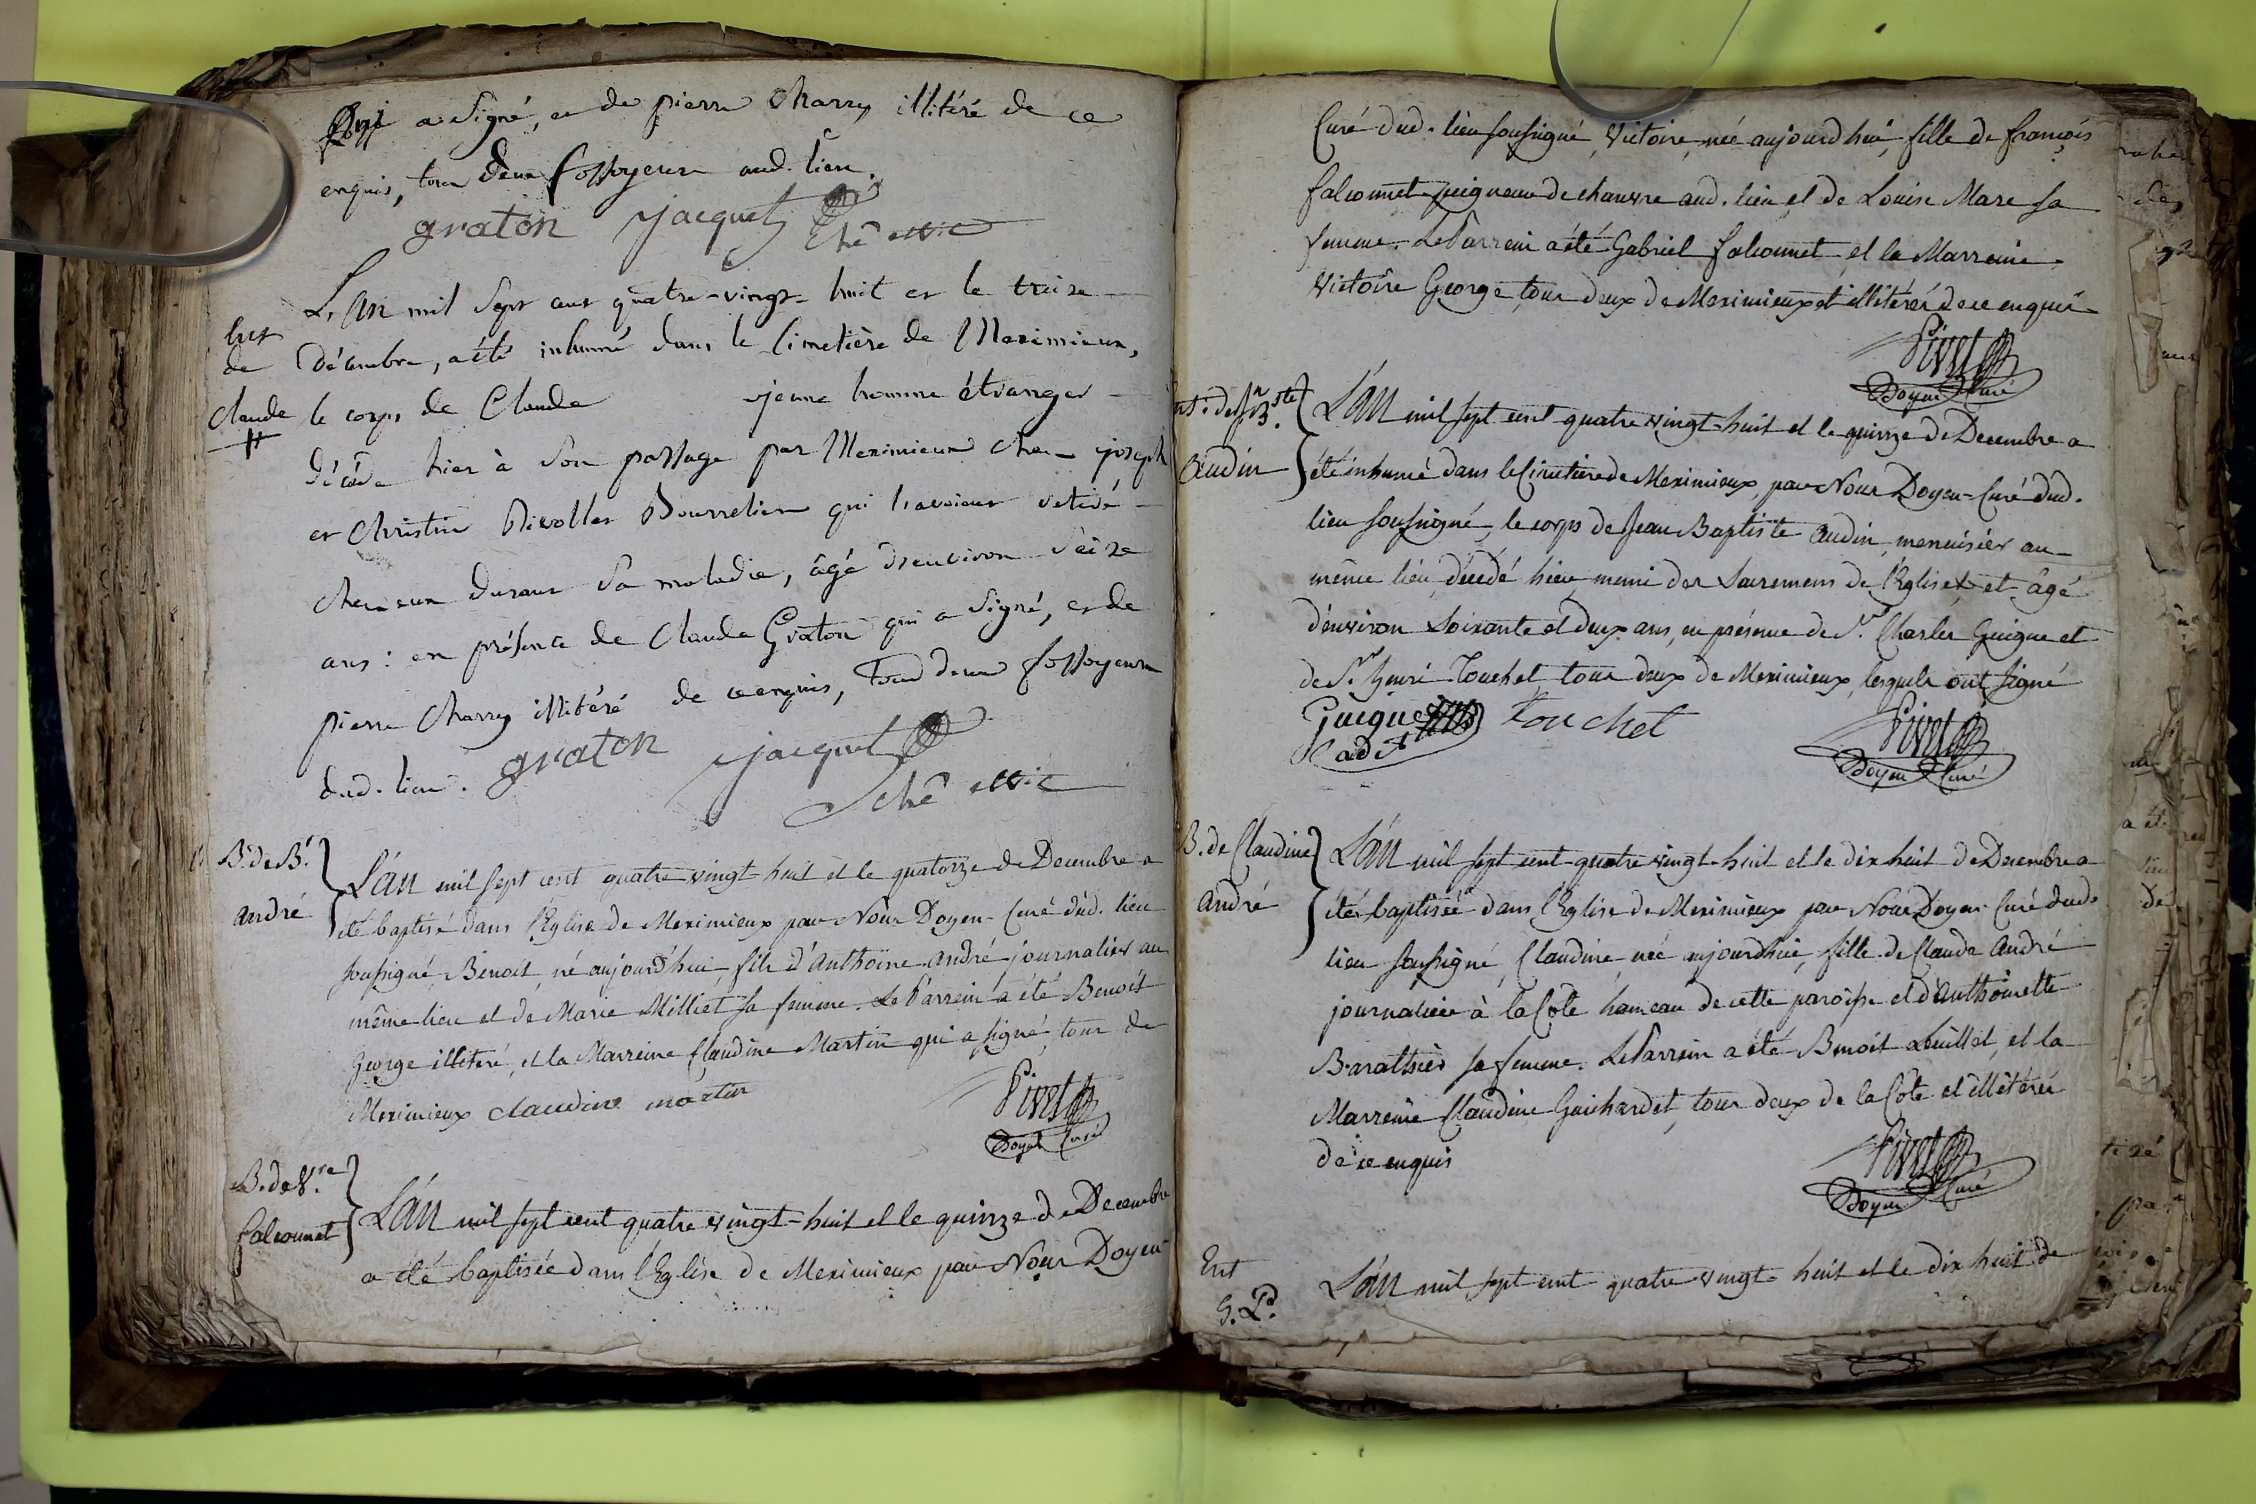 qui a signé, et de pierre Charry illitéré de ce
enquis, tous deux fossoyeurs aud. lieu.
graton jacquet
schê vic
L'an mil sept cent quatre-vingt-huit et le treize
décembre, a été inhumé dans le Cimetière de Meximieux,
Ent
de
Claude
le corps de Claude jeune homme étranger
décédé hier à son passage par Meximieux chez joseph
et Christin Bourrelier qui l'avoient retiré
chez eux durant sa maladie, âgé d'environ seize
ans : en présence de Claude Graton qui a signé, et de
pierre Charry illitéré de ce enquis, tous deux fossoyeurs
dud. lieu. graton jacquet
schê vic
B. de Bt.
andré
L'an mil sept cent quatre vingt-huit et le quatorze de Decembre a
été baptisé dans l'Eglise de Meximieux par Nous Doyen-Curé dud. lieu
soussigné, Benoit, né aujourd'hui, fils d'Anthoine andré journalier au
même lieu et de Marie Milliet sa femme. Le Parrein a été Benoit
George illiteré, et la Marreine Claudine Martin qui a signé, tous de
Meximieux claudine martin
Pivet
Doyen Curé
B. de V.re
falconnet
L'an mil sept cent quatre vingt-huit et le quinze de Decembre
a été baptisée dans l'Eglise de Meximieux par Nous Doyen
Curé dud. lieu soussigné, Victoire, née aujourd'hui, fille de françois
falconnet peigneur de chanvre aud. lieu et de Louise Mare sa
femme. Le Parrein a été Gabriel falconnet et la Marreine
Victoire George, tous deux de Meximieux et illitérés de ce enquis
Pivet
Doyen Curé
Ent. de Jn Bste
Audin
L'an mil sept cent quatre vingt-huit et le quinze de Decembre a
été inhumé dans le Cimetiere de Meximieux, par Nous Doyen-Curé dud.
lieu soussigné, le corps de Jean Baptiste Audin, menuisier au
même lieu, décédé hier, muni des Sacremens de l'Eglise et âgé
d'environ Soixante et deux ans, en présence de Sr. Charles Guigue et
de Sr. henri Touchet tous deux de Meximieux, lesquels ont signé
Guigue
Cadt
Touchet
Pivet
Doyen Curé
B. de Claudine
André
L'an mil sept cent-quatre vingt-huit et le dix huit de Decembre a
été baptisée dans l'Eglise de Meximieux par Nous Doyen Curé dud.
lieu soussigné, Claudine née aujourdhui, fille de Claude André
journalier à la Côte hameau de cette paroisse et d'Anthoinette
Barathier sa femme. Le Parrein a été Benoit et la
Marreine Claudine Guichardet, tous deux de la Côte et illitérés
de ce enquis
Pivet
Doyen Curé
Ent
G. Pd.
L'an mil sept cent quatre vingt-huit et le dix huit de